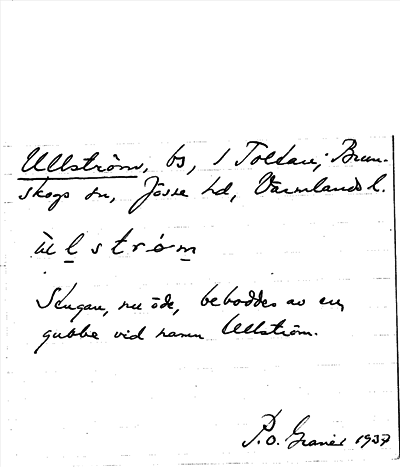 Ullström, bs, i Toltan; Brun-
skogs sn, Jösse hd, Värmlands l.
ùlström
Stugan, nu öde, beboddes av en
gubbe vid namn Ullström.
P.O. 1937